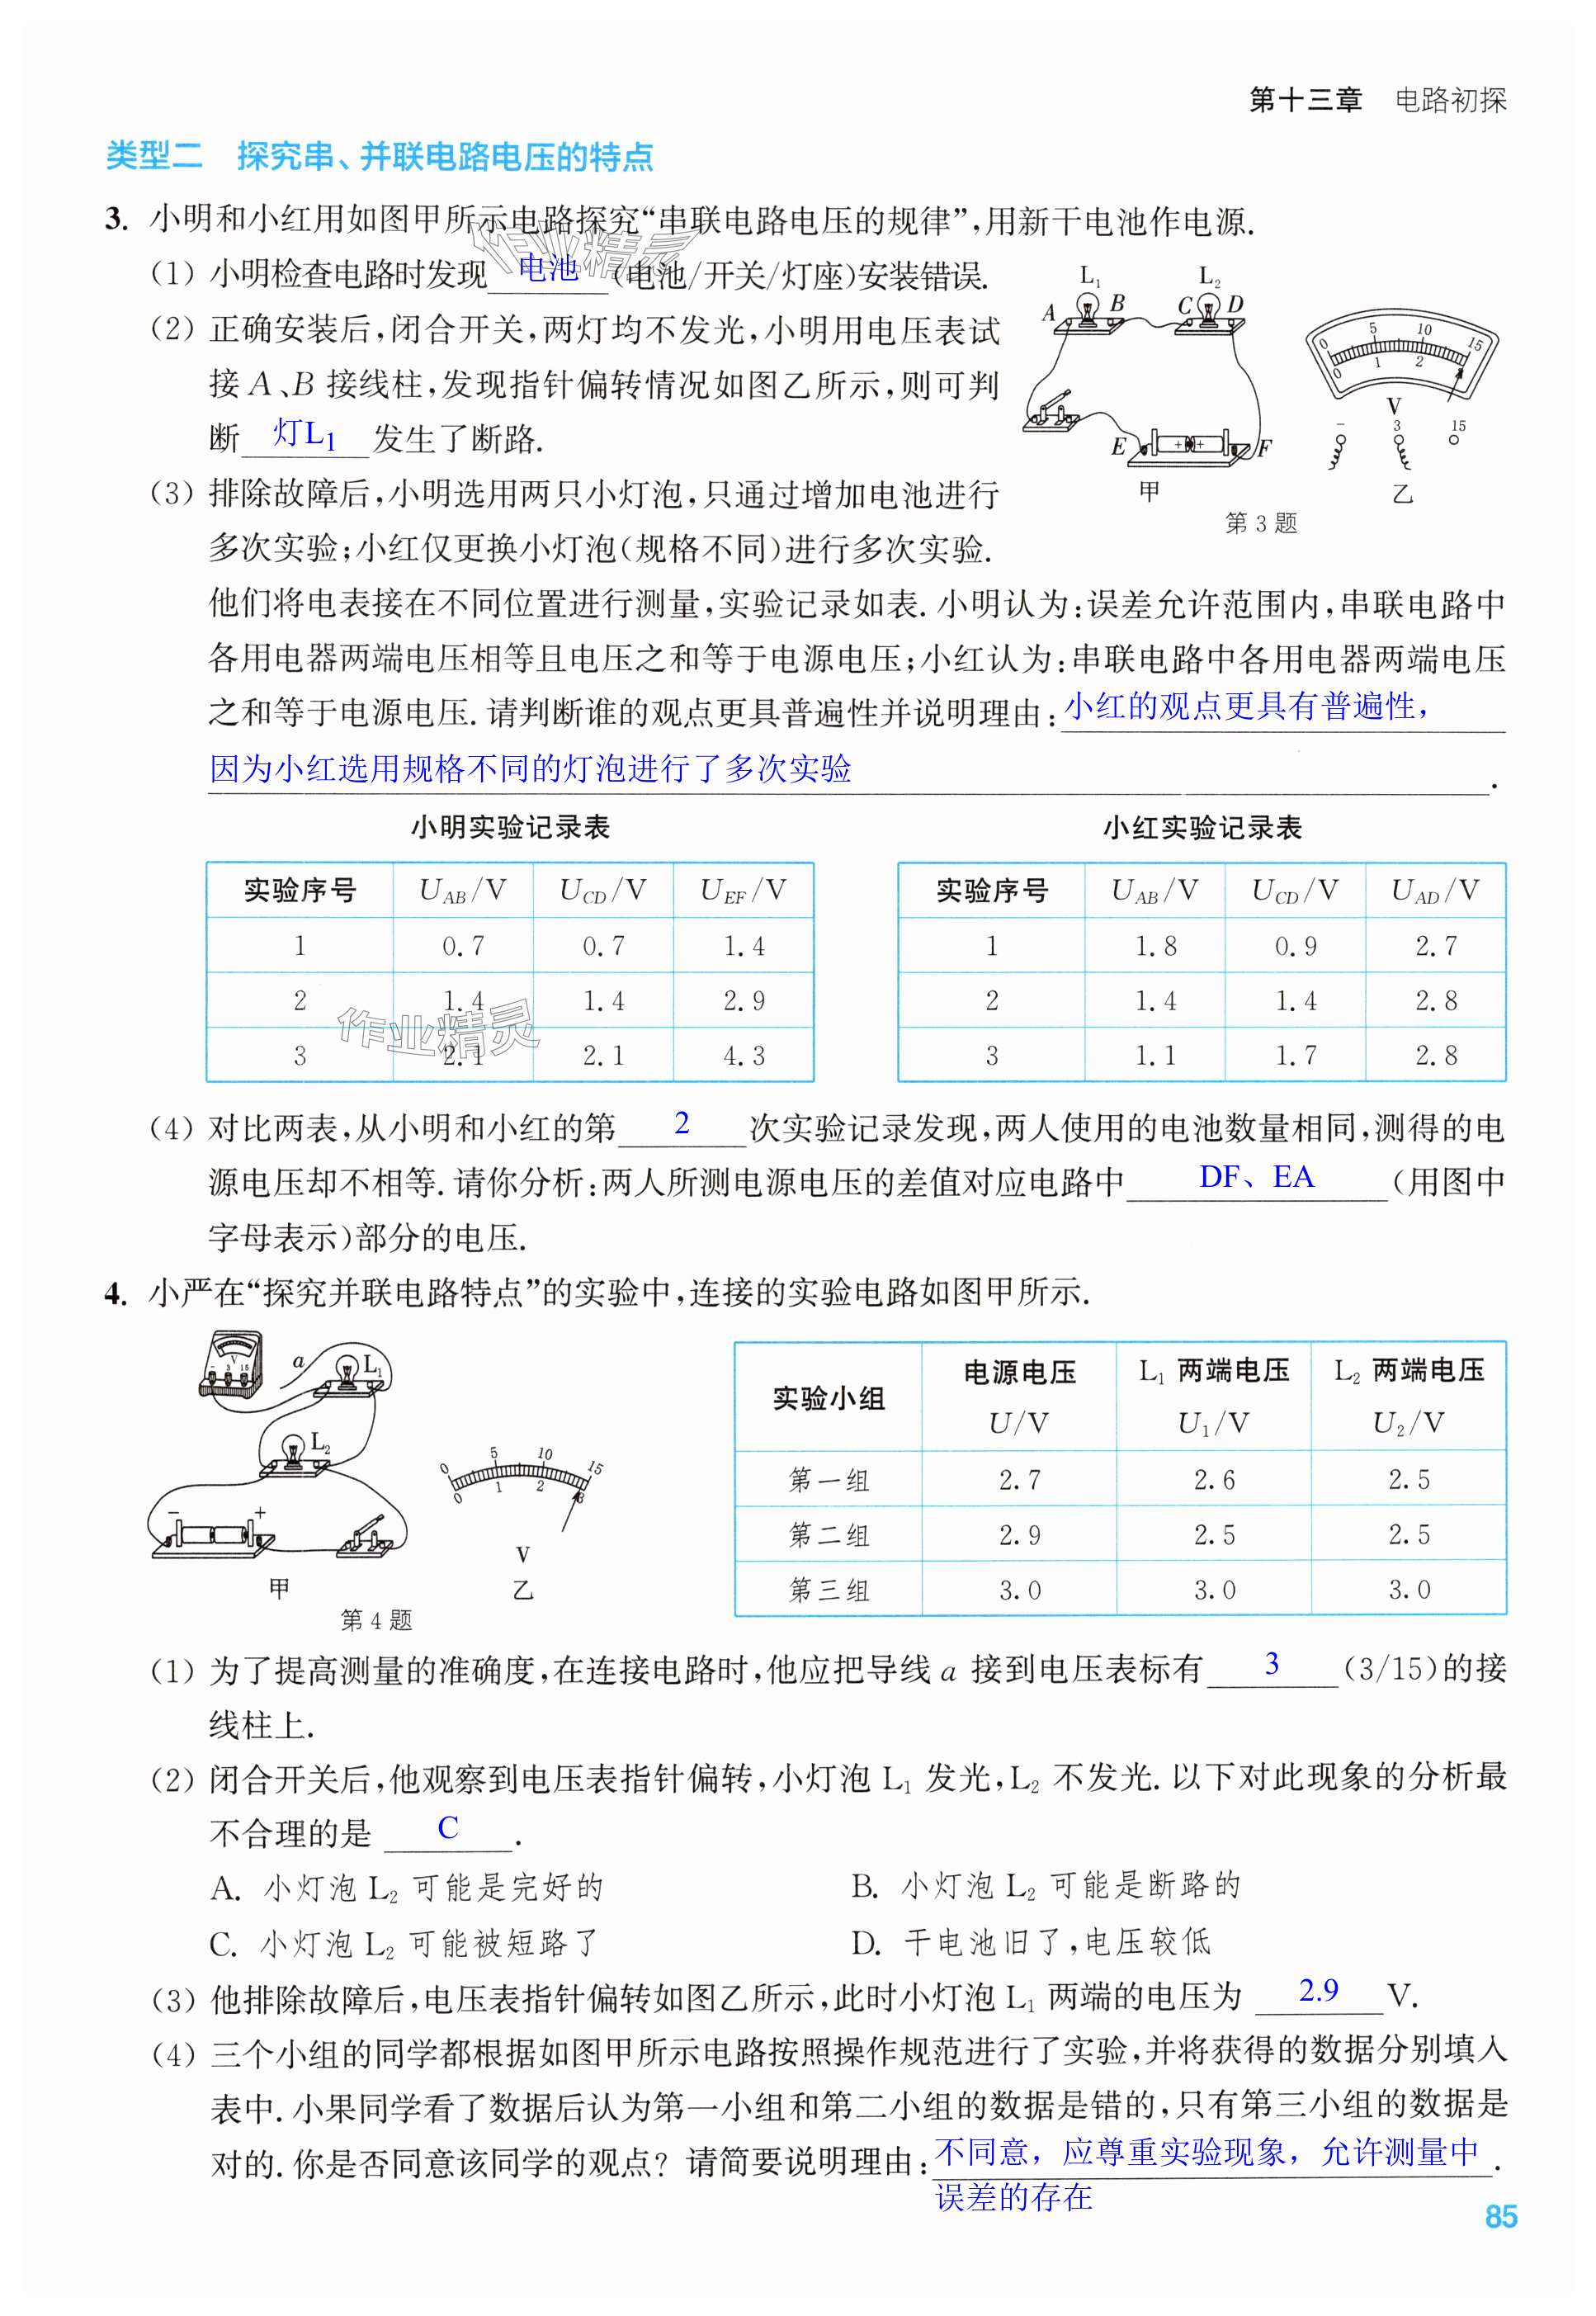 第十三章 电路初探
类型二 探究串、并联电路电压的特点
3. 小明和小红用如图甲所示电路探究“串联电路电压的规律”,用新干电池作电源.
(1) 小明检查电路时发现 电池 (电池/开关/灯座)安装错误.
(2) 正确安装后,闭合开关,两灯均不发光,小明用电压表试
接 A、B 接线柱,发现指针偏转情况如图乙所示,则可判
断 灯L₁ 发生了断路.
L₁ L₂
A B C D
E F
+ +
甲
0 5 10 15
0 1 2
V
- 3 15
乙
第 3 题
(3) 排除故障后,小明选用两只小灯泡,只通过增加电池进行
多次实验;小红仅更换小灯泡(规格不同)进行多次实验.
他们将电表接在不同位置进行测量,实验记录如表. 小明认为:误差允许范围内,串联电路中
各用电器两端电压相等且电压之和等于电源电压;小红认为:串联电路中各用电器两端电压
之和等于电源电压. 请判断谁的观点更具普遍性并说明理由: 小红的观点更具有普遍性，
因为小红选用规格不同的灯泡进行了多次实验 .
小明实验记录表
实验序号 U_AB/V U_CD/V U_EF/V
1 0.7 0.7 1.4
2 1.4 1.4 2.9
3 2.1 2.1 4.3
小红实验记录表
实验序号 U_AB/V U_CD/V U_AD/V
1 1.8 0.9 2.7
2 1.4 1.4 2.8
3 1.1 1.7 2.8
(4) 对比两表,从小明和小红的第 2 次实验记录发现,两人使用的电池数量相同,测得的电
源电压却不相等. 请你分析:两人所测电源电压的差值对应电路中 DF、EA (用图中
字母表示)部分的电压.
4. 小严在“探究并联电路特点”的实验中,连接的实验电路如图甲所示.
V
- 3 15
a L₁
L₂
- +
甲
0 5 10 15
0 1 2 3
V
乙
第 4 题
实验小组 电源电压 U/V L₁ 两端电压 U₁/V L₂ 两端电压 U₂/V
第一组 2.7 2.6 2.5
第二组 2.9 2.5 2.5
第三组 3.0 3.0 3.0
(1) 为了提高测量的准确度,在连接电路时,他应把导线 a 接到电压表标有 3 (3/15)的接
线柱上.
(2) 闭合开关后,他观察到电压表指针偏转,小灯泡 L₁ 发光,L₂ 不发光. 以下对此现象的分析最
不合理的是 C .
A. 小灯泡 L₂ 可能是完好的 B. 小灯泡 L₂ 可能是断路的
C. 小灯泡 L₂ 可能被短路了 D. 干电池旧了,电压较低
(3) 他排除故障后,电压表指针偏转如图乙所示,此时小灯泡 L₁ 两端的电压为 2.9 V.
(4) 三个小组的同学都根据如图甲所示电路按照操作规范进行了实验,并将获得的数据分别填入
表中. 小果同学看了数据后认为第一小组和第二小组的数据是错的,只有第三小组的数据是
对的. 你是否同意该同学的观点? 请简要说明理由: 不同意，应尊重实验现象，允许测量中 .
误差的存在
85
作业精灵
作业精灵